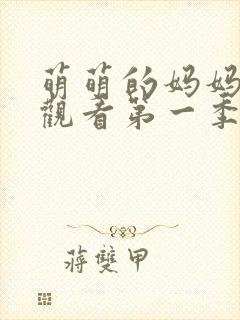 萌萌的妈妈
觀看第一季
蔣雙甲